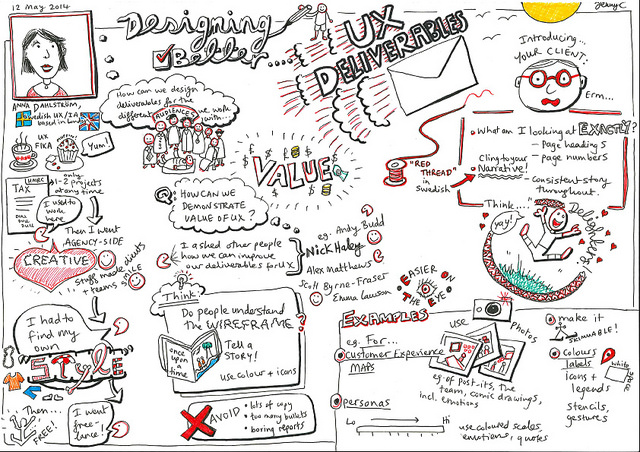 12 May 2014
Designing
Better....
UX
DELIVERABLES
JennyC
ANNA DAHLSTRÖM,
Swedish UX/IA
based in London
UX
FIKA
Yum!
TAX
HMRC
only
1-2 projects
at any time.
I used to
work
here
Then I went
AGENCY-SIDE
CREATIVE
Stuff made clients
+ teams smile
I had to
find my
own
"STYLE"
Then...
FREE!
I went
free-
lance!
How can we design
deliverables for the
different AUDIENCES we work
with...
VALUE
HOW CAN WE
DEMONSTRATE
VALUE OF UX?
I asked other people
how we can improve
our deliverables for UX
eg. Andy Budd
Nick Haley
Alex Matthews
Scott Byrne-Fraser
Emma Lawson
Think
Do people understand
the WIREFRAME?
once
upon a
time
Tell a
STORY!
use colour + icons
AVOID
• lots of copy
• too many bullets
• boring reports
Introducing...
YOUR CLIENT:
Erm...
"RED
THREAD"
in
Swedish
• What am I looking at EXACTLY?
- Page headings
- page numbers
Cling to your
Narrative!
- consistent story
throughout.
Think....
yay!
Delighters!
EASIER ON
THE EYE
EXAMPLES
eg. For...
Customer Experience
MAPS
use
PHOTOS
eg. of post-its, the
team, comic drawings,
incl. emotions
personas
Lo
Hi
use coloured scales,
emotions, quotes
make it
SKIMMABLE!
Colours
labels
icons +
legends
stencils,
gestures
white